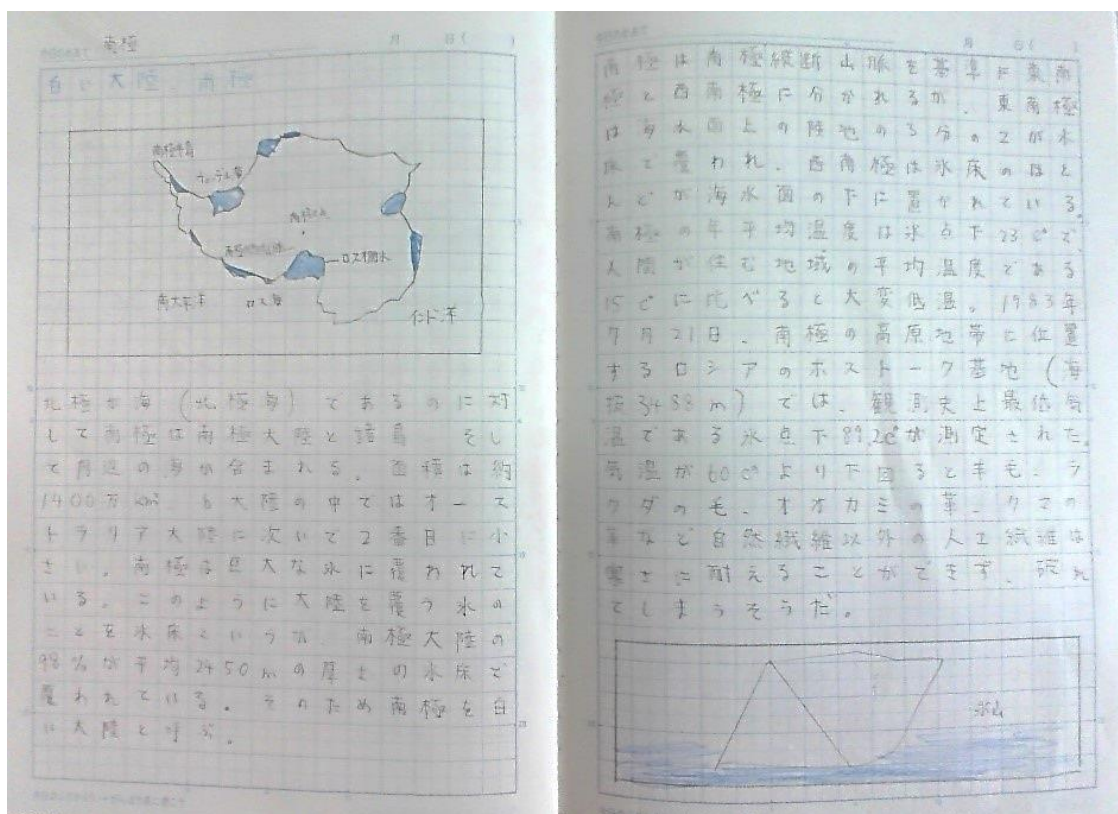 南極
月 日( )
白い大陸、南極
南極半島
ウェッデル海
南極点
ロス棚氷
南大洋
ロス海
インド洋
北極が海(北極海)であるのに対
して南極は南極大陸と諸島、そし
て周辺の海が含まれる。面積は約
1400万km² 6大陸の中ではオース
トラリア大陸に次いで2番目に小
さい。南極は巨大な氷に覆われて
いる。このように大陸を覆う氷の
ことを氷床というが、南極大陸の
98%が平均2450mの厚さの氷床で
覆われている。そのため南極を白
い大陸と呼ぶ。
月 日( )
南極は南極縦断山脈を基準に東南
極と西南極に分かれるが、東南極
は海水面上の陸地の3分の2が氷
床で覆われ、西南極は氷床のほと
んどが海水面の下に置かれている。
南極の年平均温度は氷点下23c°で、
人間が住む地域の平均温度である
15c°に比べると大変低温。1983年
7月21日、南極の高原地帯に位置
するロシアのボストーク基地(海
抜3488m)では、観測史上最低気
温である氷点下89.2c°が測定された。
気温が60c°より下回ると羊毛、ラ
クダの毛、オオカミの革、クマの
革など自然繊維以外の人工繊維は
寒さに耐えることができず、破れ
てしまうそうだ。
氷山